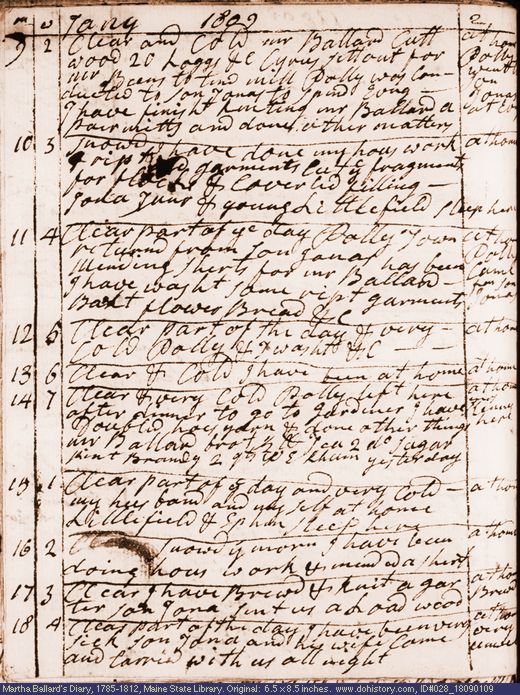 m w Jany 1809
9 2 Clear and Cold mr Ballard Cutt at home
wood 20 loggs &c Cyrus sett out for Dolly
mr Beens to tend mill Dolly was Con went
ducted to son Jonas to spind
I have finisht kniting mr Ballard a Jonas
pair mitts and done other matters
10 3 Snowd I have done my hous work at home
& ript garments Cutt fragments
for & Coverlid filling
Jona Junr & young Littlefield sleep here
11 4 Clear part of ye day Dolly Town at home
returnd from son Jonas has been Dolly
mending sherts for mr Ballard Came
I have washt some ript garments
Bakt flower Bread &C Jonas
12 5 Clear part of the day & very at home
Cold Dolly & I washt &C
13 6 Clear & Cold I have been at home at home
14 7 Clear & very Cold Dolly left here at home
after dinner to go to Gardiner I have
Doubled hos yarn & done other things here
mr Ballard Tea 2 do Sugar
Brandy 2 Ephm yesterday
15 1 Clear part of ye day and very Cold at home
my husband and my self at home
Littlefield & Ephm sleep here
16 2 snowd morn I have been at home
doing hous work & mended a shert
17 3 Clear I have Brewd & knit a gar at home
ter son Jona sent us a load wood Brewd
18 4 Clear part of the day I have been very at home
sick son Jona and his wife Came very
and tarried with us all night unwell
Martha Ballard's Diary, 1785-1812, Maine State Library. Original: 6.5 x 8.5 inches. www.dohistory.com, ID#028_18090109